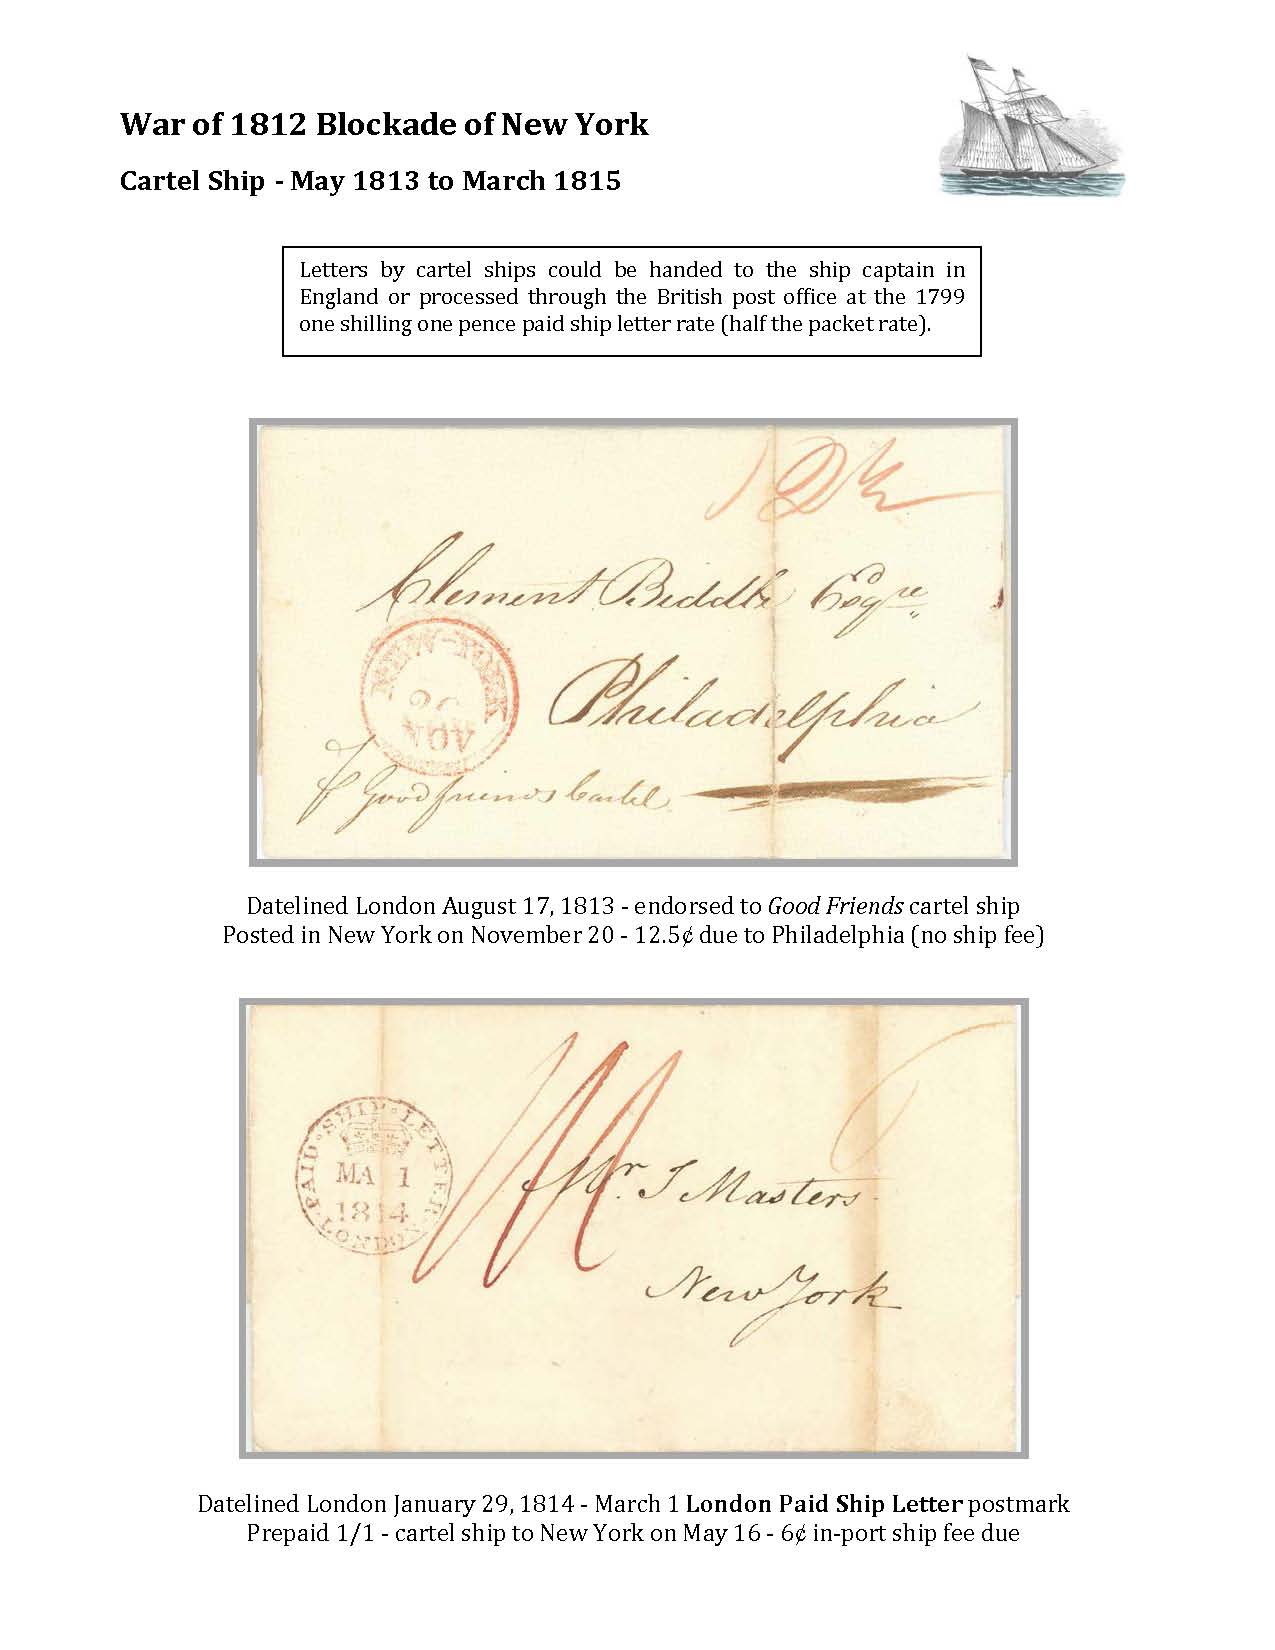 War of 1812 Blockade of New York
Cartel Ship - May 1813 to March 1815
Letters by cartel ships could be handed to the ship captain in
England or processed through the British post office at the 1799
one shilling one pence paid ship letter rate (half the packet rate).
12½
Clement Biddle Esqre
NEW-YORK
20
NOV
Philadelphia
Good friends Cartel
Datelined London August 17, 1813 - endorsed to Good Friends cartel ship
Posted in New York on November 20 - 12.5¢ due to Philadelphia (no ship fee)
PAID · SHIP · LETTER · LONDON
MA 1
1814
1/1
6
Mr. J Masters
New York
Datelined London January 29, 1814 - March 1 London Paid Ship Letter postmark
Prepaid 1/1 - cartel ship to New York on May 16 - 6¢ in-port ship fee due